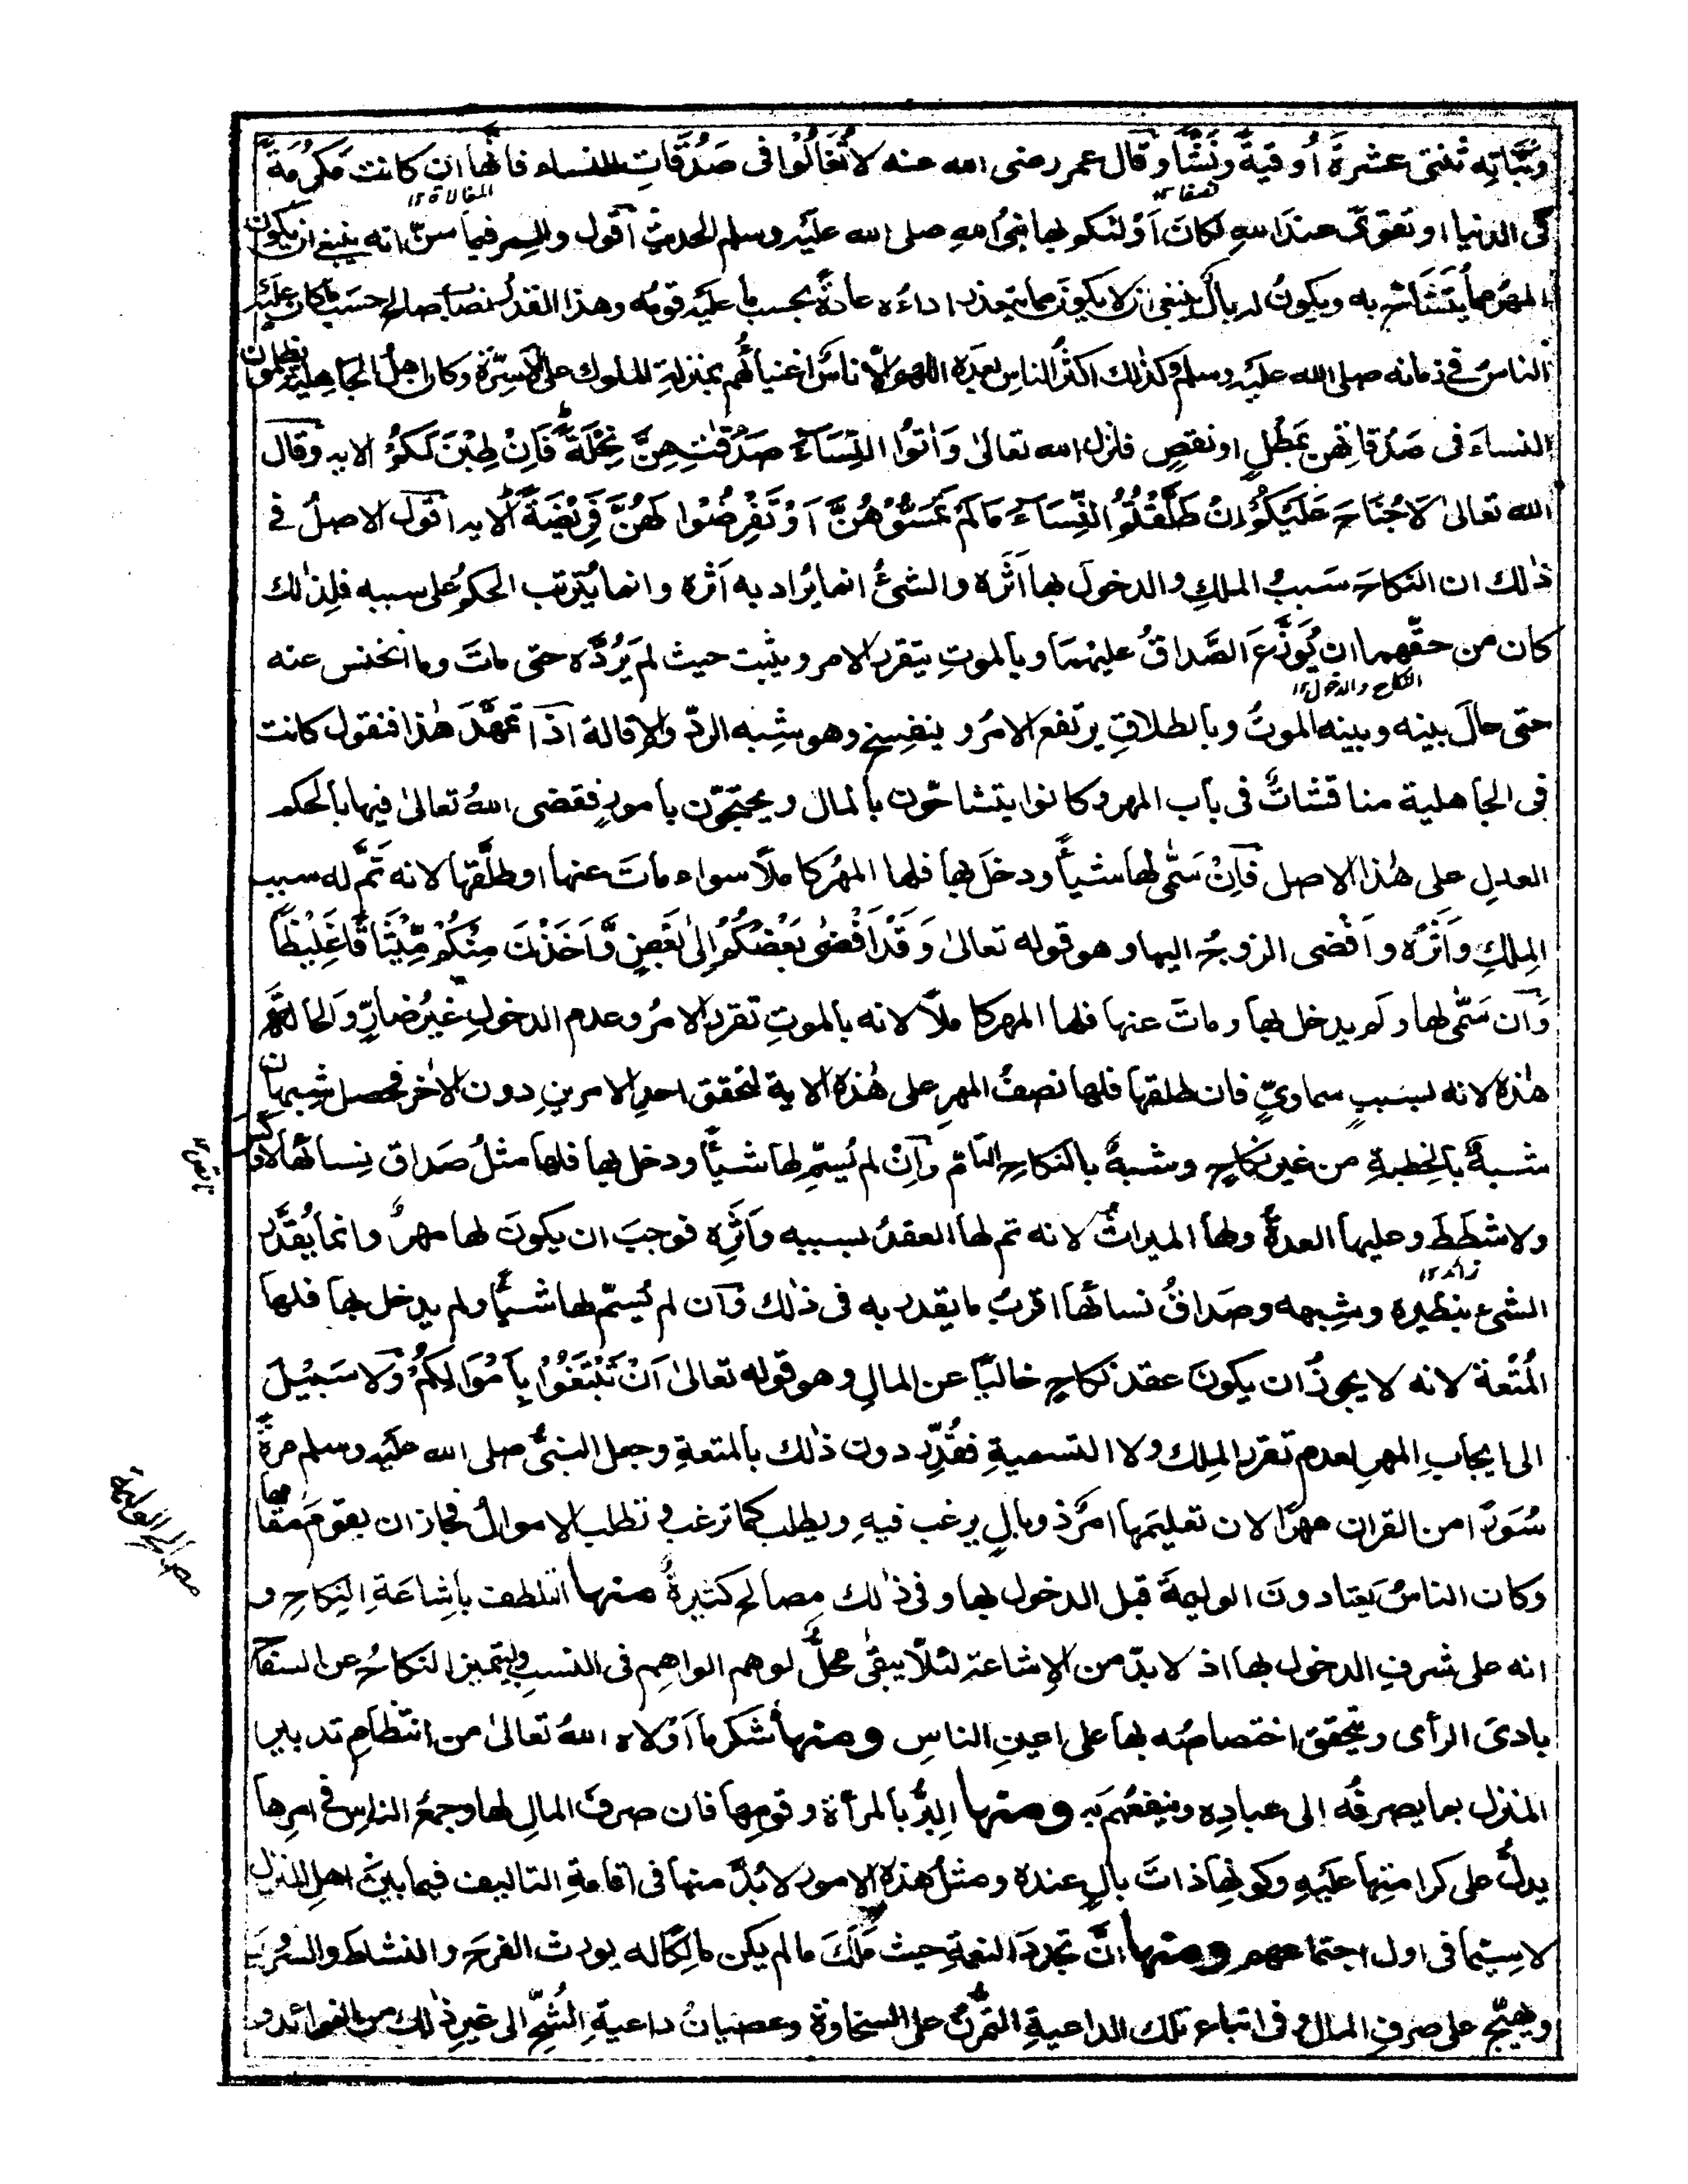 وبناته ثنتى عشرةَ أوقيةً ونَشًّا وقال عمر رضى الله عنه لا تُغَالُوْا فى صَدُقَاتِ النساء فانها ان كانت مَكرُمَةً
نصفا ١٢
المغالاة ١٢
فى الدنيا او تقوىً عندَ اللهِ لكانَ اَوْلٰىكم بها نبىُّ اللهِ صلى الله عليه وسلم الحديث اقول والسر فيما سنّ انه ينبغى ان يكون
المهرُ مما يُتَشَاحُّ به ويكونُ له بالٌ ينبغى ان لا يكونَ مما يتعذر اداءُه عادةً بحسب ما عليه قومُه وهذا القدرُ نصابٌ صالحٌ حسبَ ما كان عليه
الناسُ فى زمانه صلى الله عليه وسلم وكذلك اكثرُ الناسِ بعدَه اللهم الا ناسٌ اغنياؤُهم بمنزلةِ الملوك على الاَسِرَّةِ وكان اهلُ الجاهليةِ يظلمون
النساءَ فى صَدُقاتِهن بمَطْلٍ او نقصٍ فنزل الله تعالى وَاٰتُوا النِّسَآءَ صَدُقٰتِهِنَّ نِحْلَةً فَاِنْ طِبْنَ لَكُمْ الاية وقال
الله تعالى لَاجُنَاحَ عَلَيْكُمْ اِنْ طَلَّقْتُمُ النِّسَآءَ مَا لَمْ تَمَسُّوْهُنَّ اَوْ تَفْرِضُوْا لَهُنَّ فَرِيْضَةً الاية اقول الاصلُ فى
ذٰلك ان النكاحَ سَببُ الملكِ والدخولَ بها اَثَرُه والشىءُ انما يُراد به اَثرُه وانما يُترتب الحكمُ على سببه فلِذٰلك
كان من حقِّهما ان يُوَزَّعَ الصَّداقُ عليهما وبالموتِ يتقرر الامر ويثبت حيث لم يَرُدَّه حتى ماتَ وما انخنس عنه
النكاح والدخول ١٢
حتى حالَ بينه وبينه الموتُ وبالطلاقِ يرتفع الامرُ وينفسِخ وهو شِبه الردّ والاِقالة اذا تمهَّدَ هٰذا فنقول كانت
فى الجاهلية مناقشاتٌ فى باب المهر وكانوا يتشاحّون بالمال ويحتجّون بأمورٍ فقضى اللهُ تعالىٰ فيها بالحكم
العدلِ على هٰذا الاصل فاِنْ سَمّٰى لها شيأً ودخلَ بها فلها المهرُ كاملًا سواء ماتَ عنها او طلَّقها لانه تَمَّ له سبب
المِلكِ واَثَرُه واَفْضى الزوجُ اليها وهو قوله تعالىٰ وَقَدْ اَفْضٰى بَعْضُكُمْ اِلٰى بَعْضٍ وَّاَخَذْنَ مِنْكُمْ مِّيْثَاقًا غَلِيْظًا
وَاَن سَمّٰى لها ولم يدخل بها وماتَ عنها فلها المهر كاملًا لانه بالموتِ تقرر الامرُ وعدم الدخولِ غيرُ ضارٍّ والحالة
هٰذه لانه بسببٍ سماوىٍّ فان طلقها فلها نصفُ المهرِ على هٰذه الاية لتحقق احدِ الامرينِ دون الاٰخر فحصل شبهان
شبهٌ بالخِطبةِ من غير نكاحٍ وشبهٌ بالنكاحِ التام واِنْ لم يُسمّ لها شيأً ودخل بها فلها مثلُ صَداق نِسائها لاوكسَ
نقص ١٢
ولا شطَطَ وعليها العدةُ ولها الميراثُ لانه تم لها العقدُ بسببه واَثَرِه فوجبَ ان يكونَ لها مهرٌ وانما يُقدَّر
زائد ١٢
الشىء بنظيره وشِبهه وصَداقُ نسائها اقربُ ما يقدر به فى ذٰلك وَاَن لم يُسمّ لها شيأً ولم يدخل بها فلها
المُتْعة لانه لا يجوزُ ان يكونَ عقد نكاحٍ خاليًا عن المالِ وهو قوله تعالىٰ اَنْ تَبْتَغُوْا بِاَمْوَالِكُمْ ولا سَبِيْلَ
الى ايجابِ المهرِ لعدم تقرر المِلك ولا التسميةِ فقُدِّر دون ذٰلك بالمتعةِ وجعل النبىُّ صلى الله عليه وسلم مرةً
سُوَرًا من القراٰن مهرًا لان تعليمَها امرٌ ذو بالٍ يرغب فيهِ ويطلب كما ترغب وتطلب الاموالُ فجاز ان يقومَ مقامَها
وكان الناسُ يَعتادونَ الوليمةَ قبل الدخول بها وفى ذٰلك مصالحُ كثيرةٌ منها التلطف باِشاعَةِ النِكاحِ و
مصالح الوليمة
انه على شرفِ الدخول بها اذ لابدّ من الاِشاعة لئلا يبقى محلٌّ لوهم الواهِم فى النسبِ وليتميز النكاحُ عن السفاح
بادىَ الرأى ويتحققَ اختصاصُه بها على اعينِ الناسِ ومنها شكر ما اَوْلاه اللهُ تعالىٰ من انتظامِ تدبير
المنزل بما يصرفُه الى عبادِه وينفعُهم به ومنها البِرُّ بالمرأة وقومِها فان صرفَ المالِ لها وجمعَ الناسِ فى امرِها
يدلُّ على كرامتِها عليه وكونِها ذاتَ بالٍ عنده ومثلُ هٰذه الامور لابُدَّ منها فى اقامةِ التاليف فيما بينَ اهلِ المنزل
لاسيّما فى اول اجتماعهم ومنها انَّ تجددَ النعمةِ حيث مَلَكَ ما لم يكن مالِكًا له يورث الفرحَ والنشاطَ والسرورَ
ويهيّج على صرفِ المال وفى اتباع تلك الداعيةِ التمرنُ على السخاوة وعصيانُ داعيةِ الشُّحّ الى غيرِ ذٰلك من الفوائد و